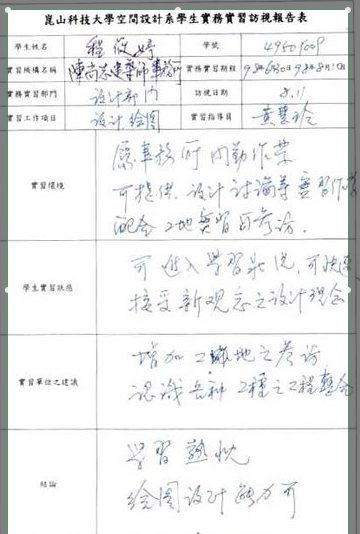 崑山科技大學空間設計系學生實務實習訪視報告表
學生姓名 程筱婷 學號 4950J008
實習機構名稱 陳尚志建築師事務所 實務實習期程
實務實習部門 設計部門 訪視日期 8.11
實習工作項目 設計繪圖 實習指導員 黃慧玲
實習環境
屬事務所內勤作業
可提供設計討論等實習作業
配合工地實習可參訪.
學生實習狀態
可進入學習狀況,可快速
接受新觀念之設計理念
實習單位之建議
增加工地之參訪
認識各種工種之工程整合
結論
學習熱忱
繪圖設計能力可